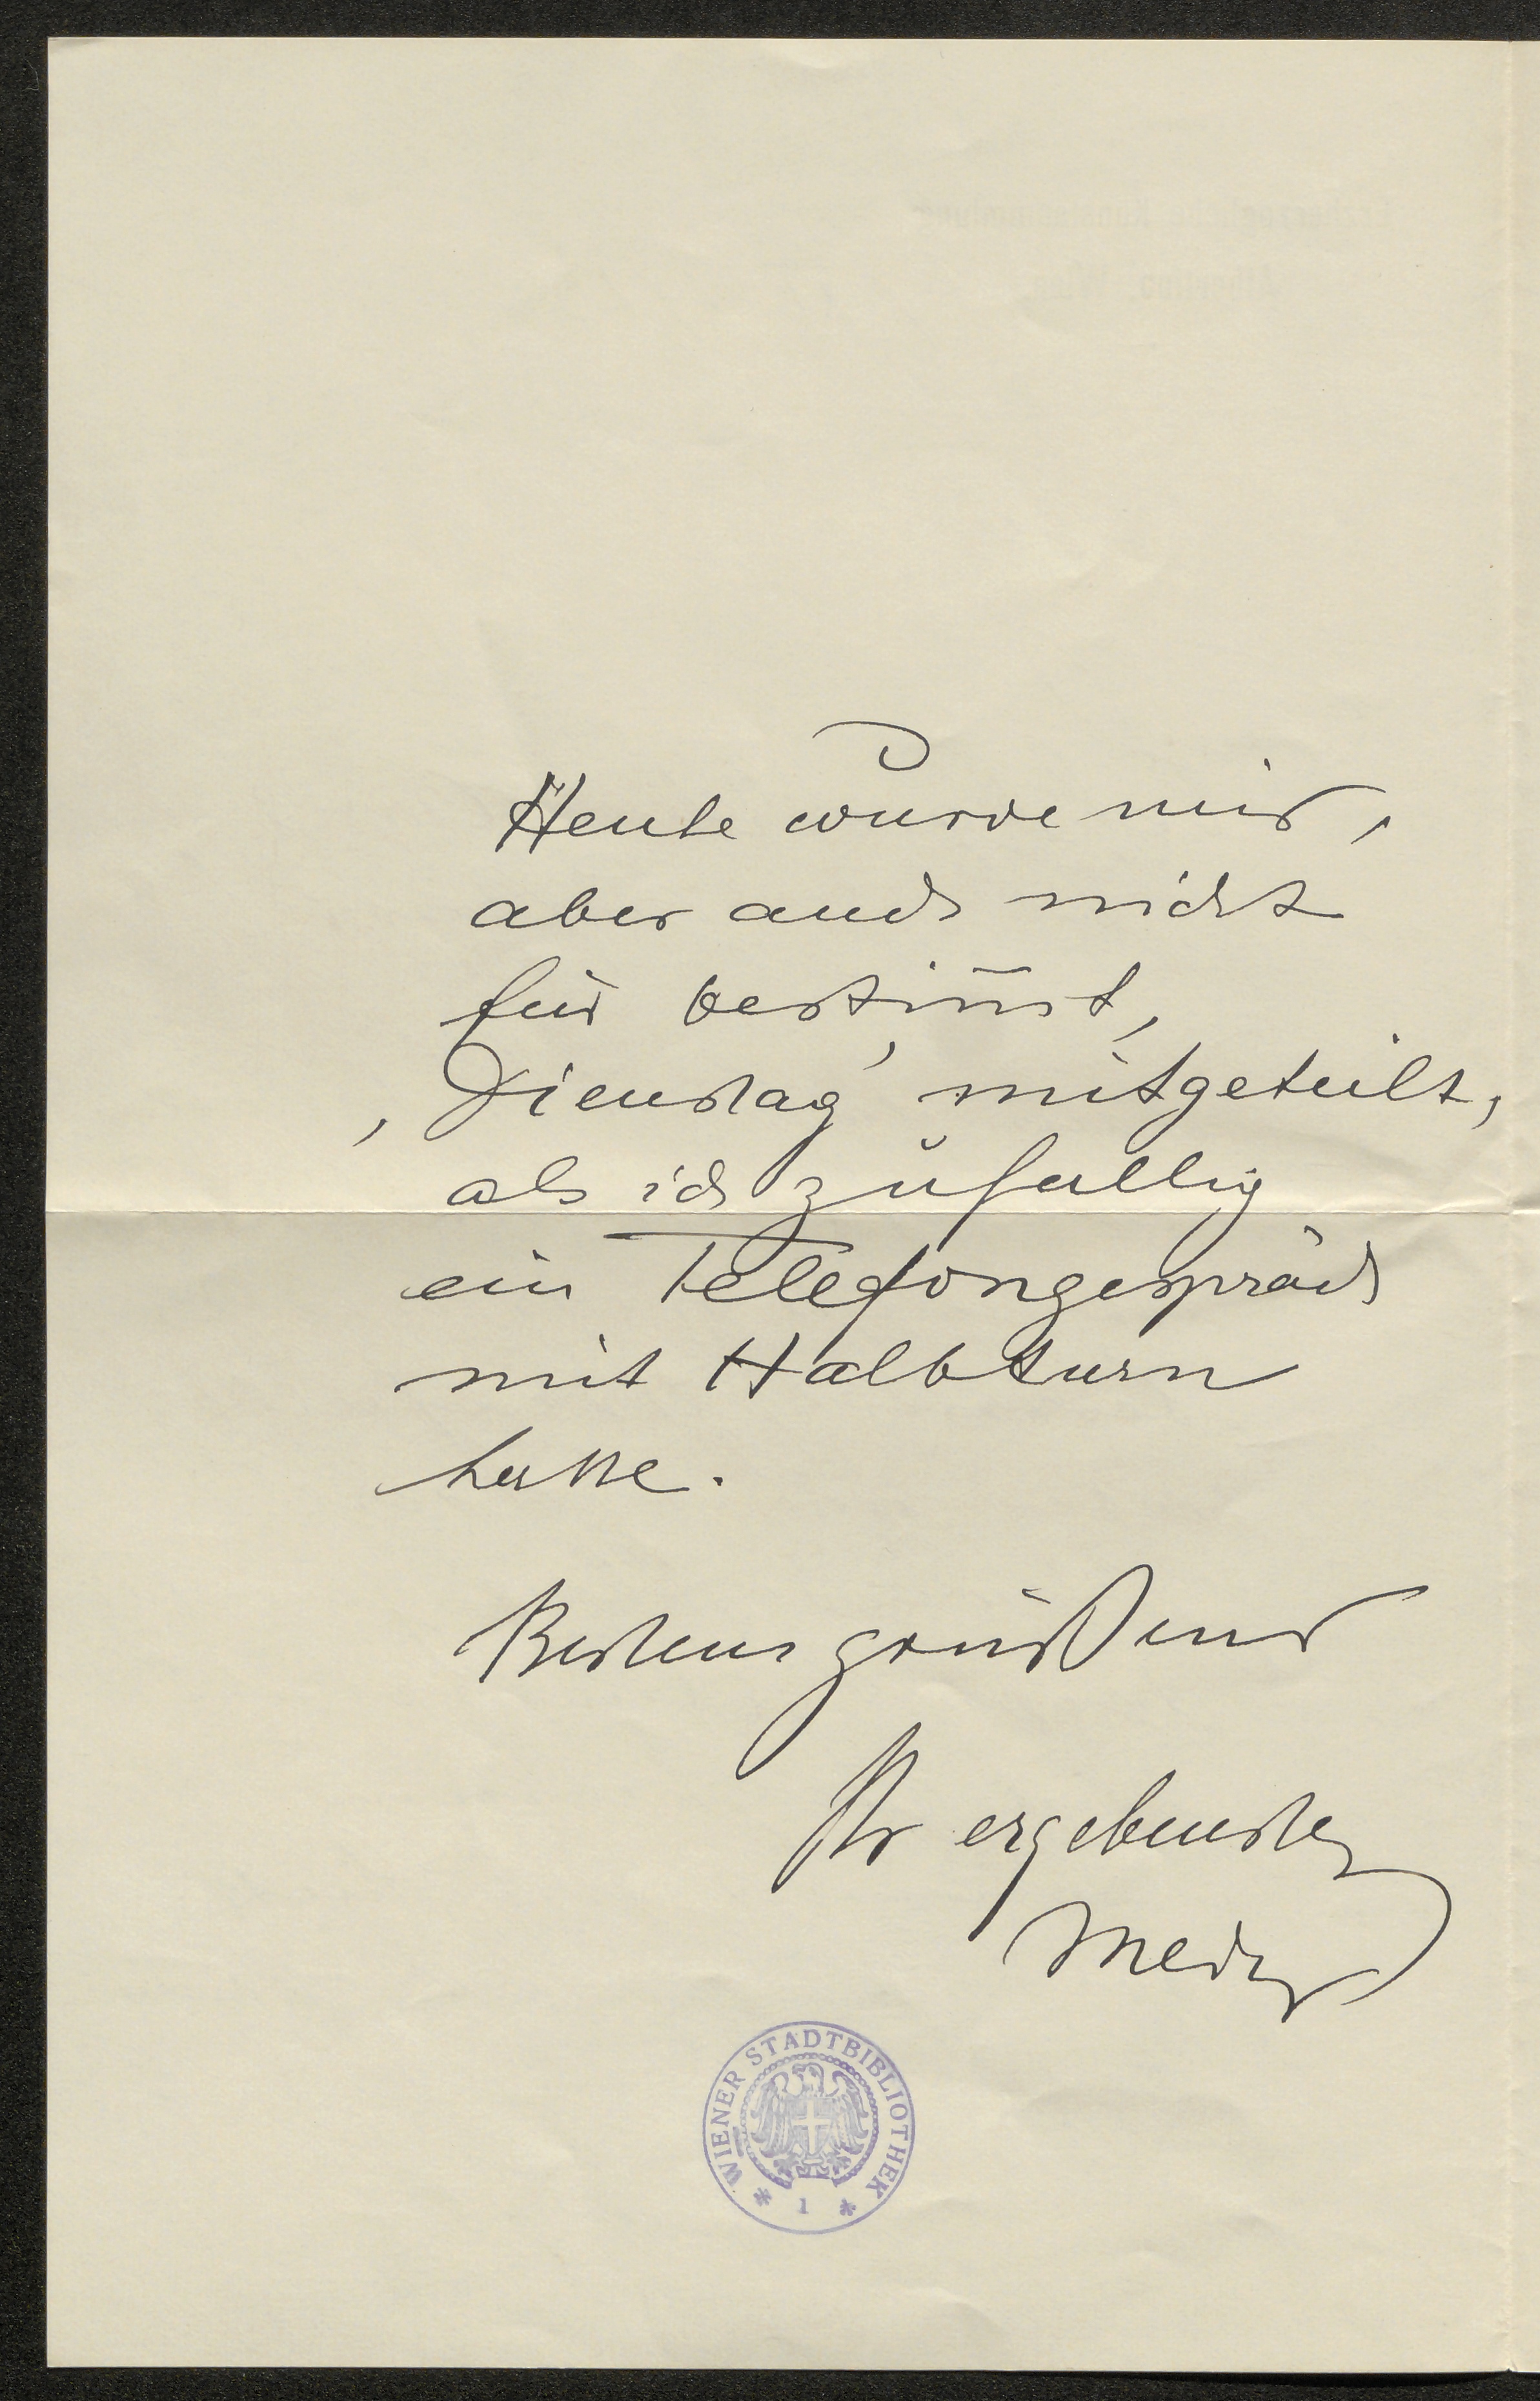 Heute wurde mir,
aber auch nicht
für bestim̄t,
'Dienstag' mitgeteilt,
als ich zufällig
ein Telefongespräch
mit Halbturn
hatte.
Bestens grüßend
Ihr ergebenster
Meder
WIENER STADTBIBLIOTHEK
* 1 *